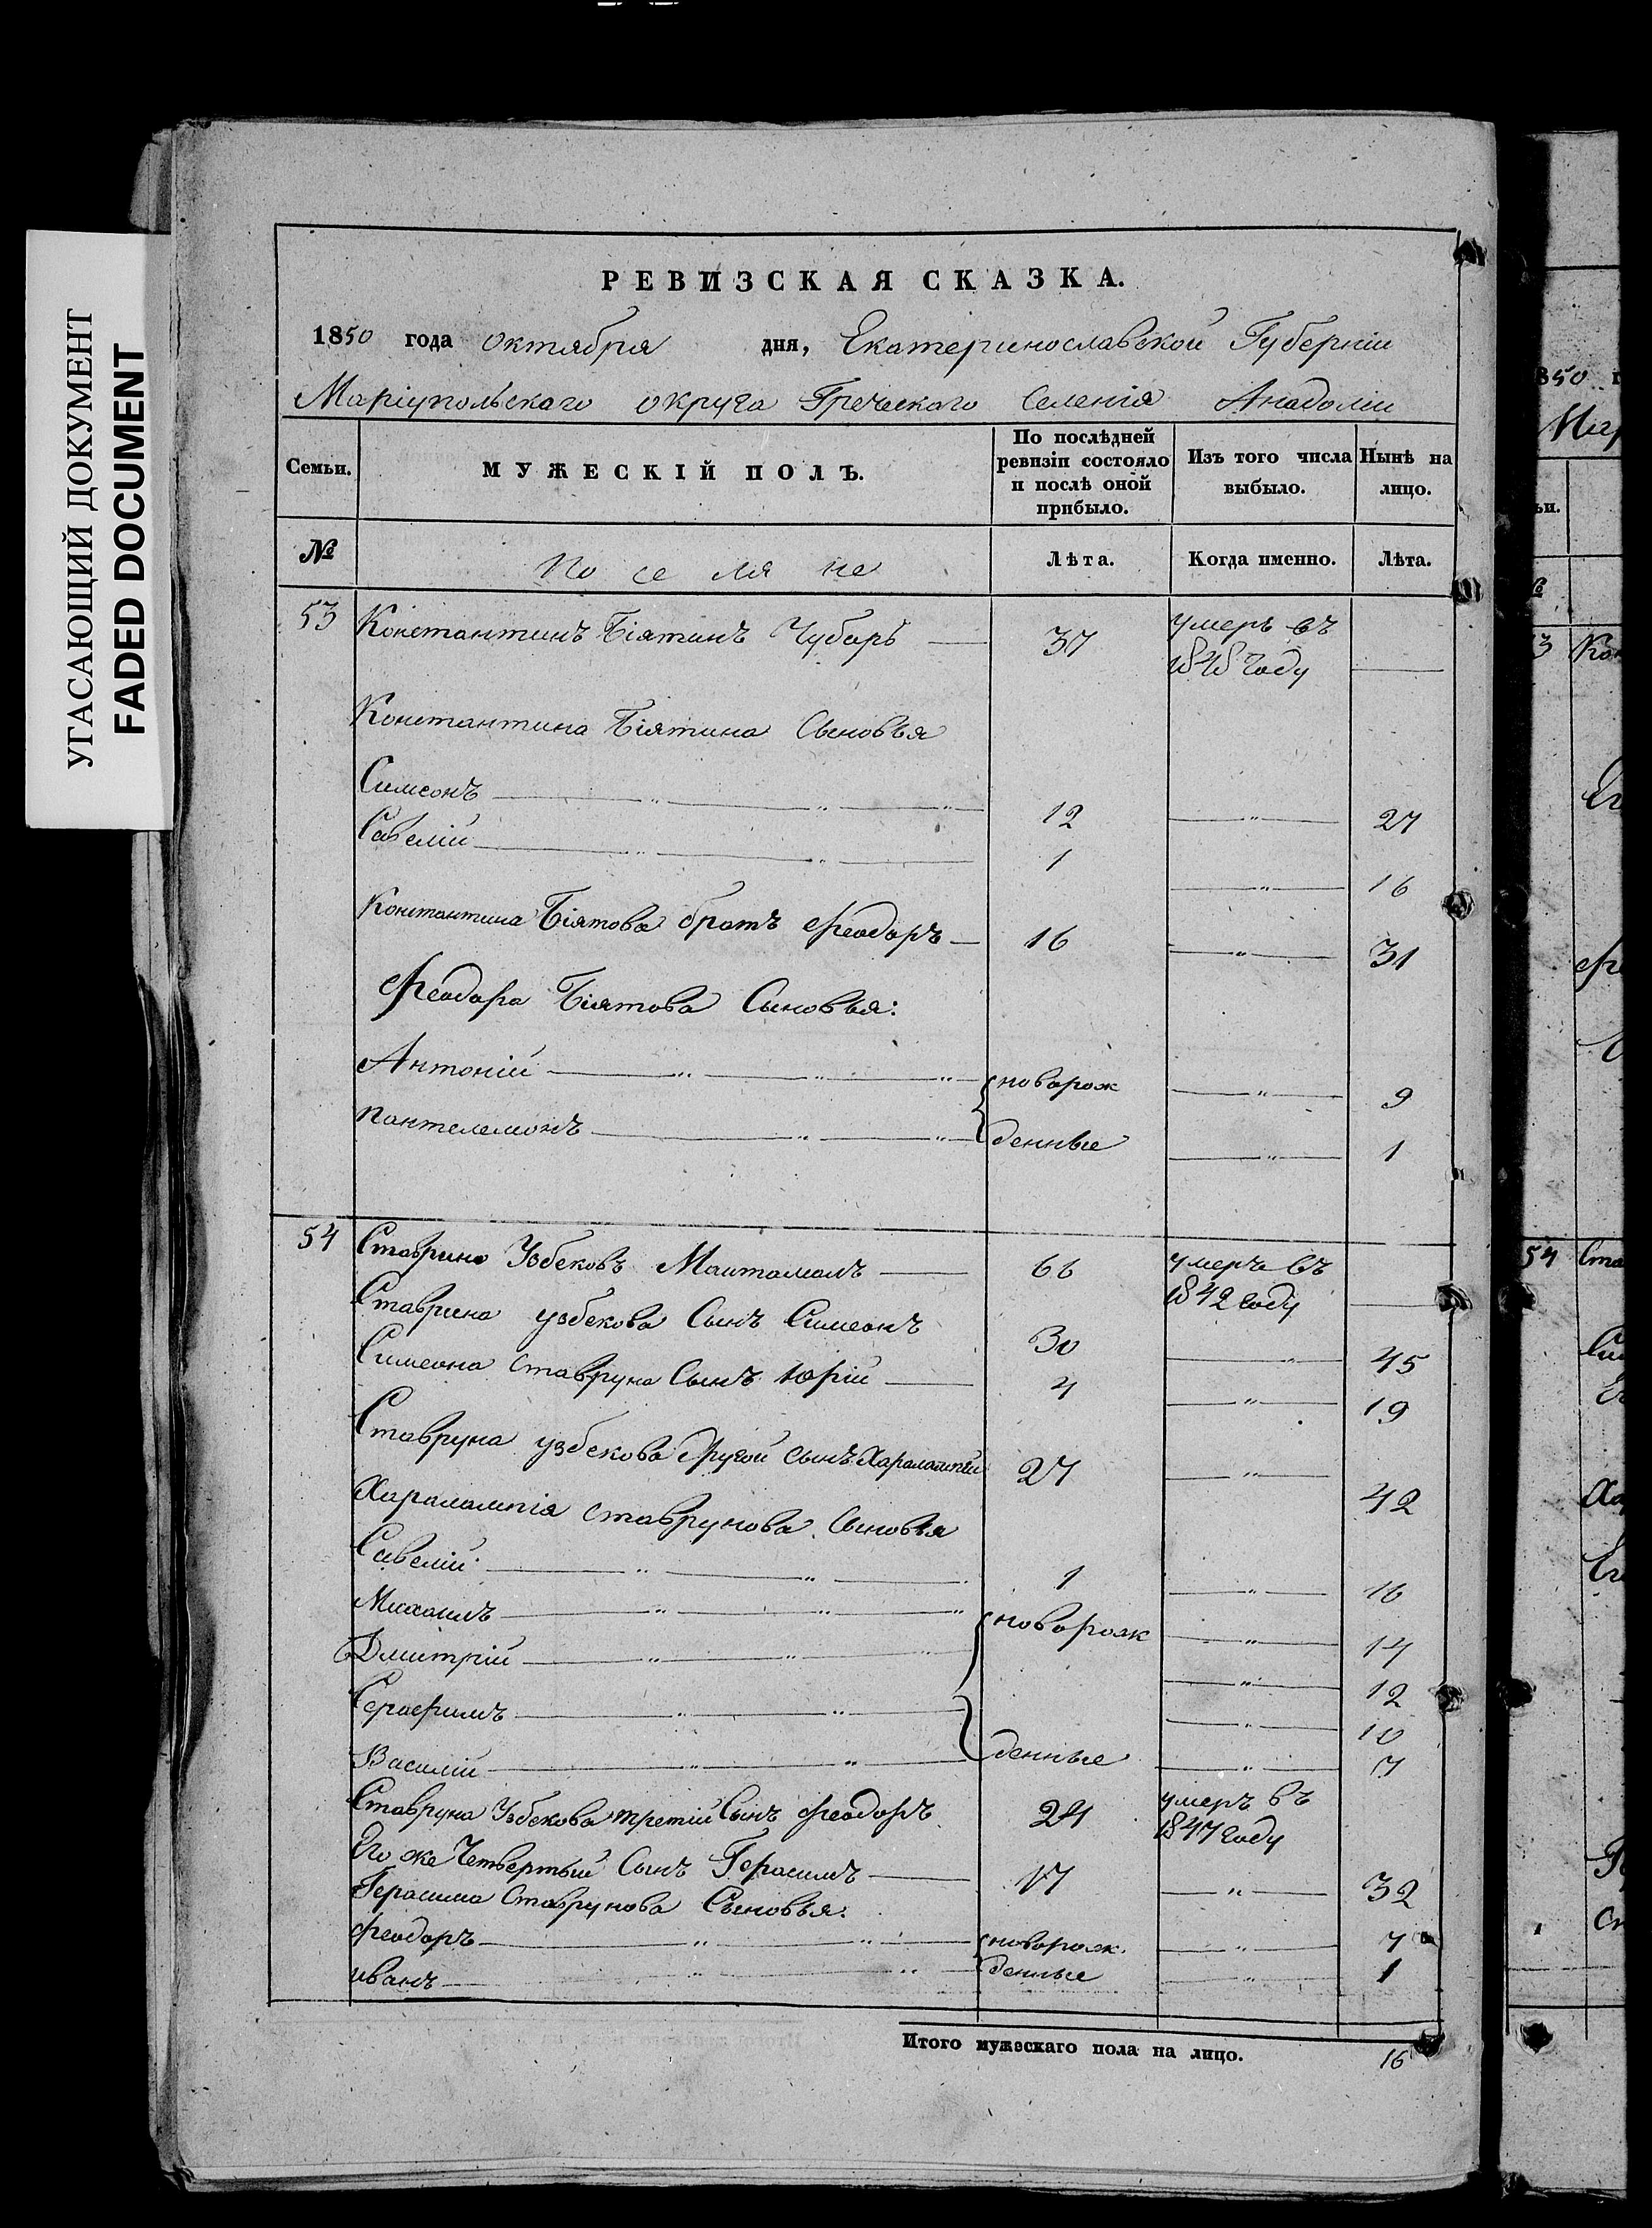 УГАСАЮЩИЙ ДОКУМЕНТ
FADED DOCUMENT
РЕВИЗСКАЯ СКАЗКА.
1850 года октября дня, Екатеринославской Губерніи
Маріупольскаго округа Греческаго Селенія Анадоліи
Семьи. МУЖЕСКІЙ ПОЛЪ. По послѣдней ревизіи состояло и послѣ оной прибыло. Изъ того числа выбыло. Нынѣ на лицо.
№ Поселяне Лѣта. Когда именно. Лѣта.
53 Константинъ Біятинъ Чубарь 37 умеръ въ 1848 году
Константина Біятина Сыновья
Симеонъ 12 " 27
Савелій 1 " 16
Константина Біятова братъ Феодоръ 16 " 31
Феодора Біятова Сыновья:
Антоній новорож " 9
Пантелемонъ денные " 1
54 Ставринъ Узбековъ 66 умеръ въ 1842 году
Ставрина узбекова Сынъ Симеонъ 30 " 45
Симеона Ставруна Сынъ Юрій 4 " 19
Ставруна узбекова другой сынъ Харалампій 27 " 42
Харалампія Ставрунова Сыновья
Савелій 1 " 16
Михаилъ новорож " 14
Дмитрій " 12
Серафимъ " 10
Василій денные " 7
Ставруна Узбекова третій Сынъ Феодоръ 24 умеръ въ 1847 году
Его же Четвертый Сынъ Герасимъ 17 " 32
Герасима Ставрунова Сыновья:
Феодоръ новорож " 4
Иванъ денные " 1
Итого мужескаго пола на лицо. 16